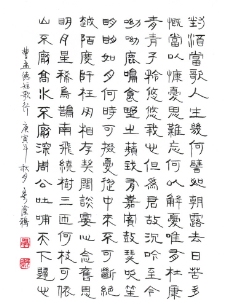 對酒當歌人生幾何譬如朝露去日苦多
慨當以慷憂思難忘何以解憂唯有杜康
青青子衿悠悠我心但為君故沉吟至今
呦呦鹿鳴食野之苹我有嘉賓鼓瑟吹笙
明明如月何時可掇憂從中來不可斷絕
越陌度阡枉用相存契闊談宴心念舊恩
明月星稀烏鵲南飛繞樹三匝何枝可依
山不厭高水不厭深周公吐哺天下歸心
曹孟德短歌行 庚寅年秋月